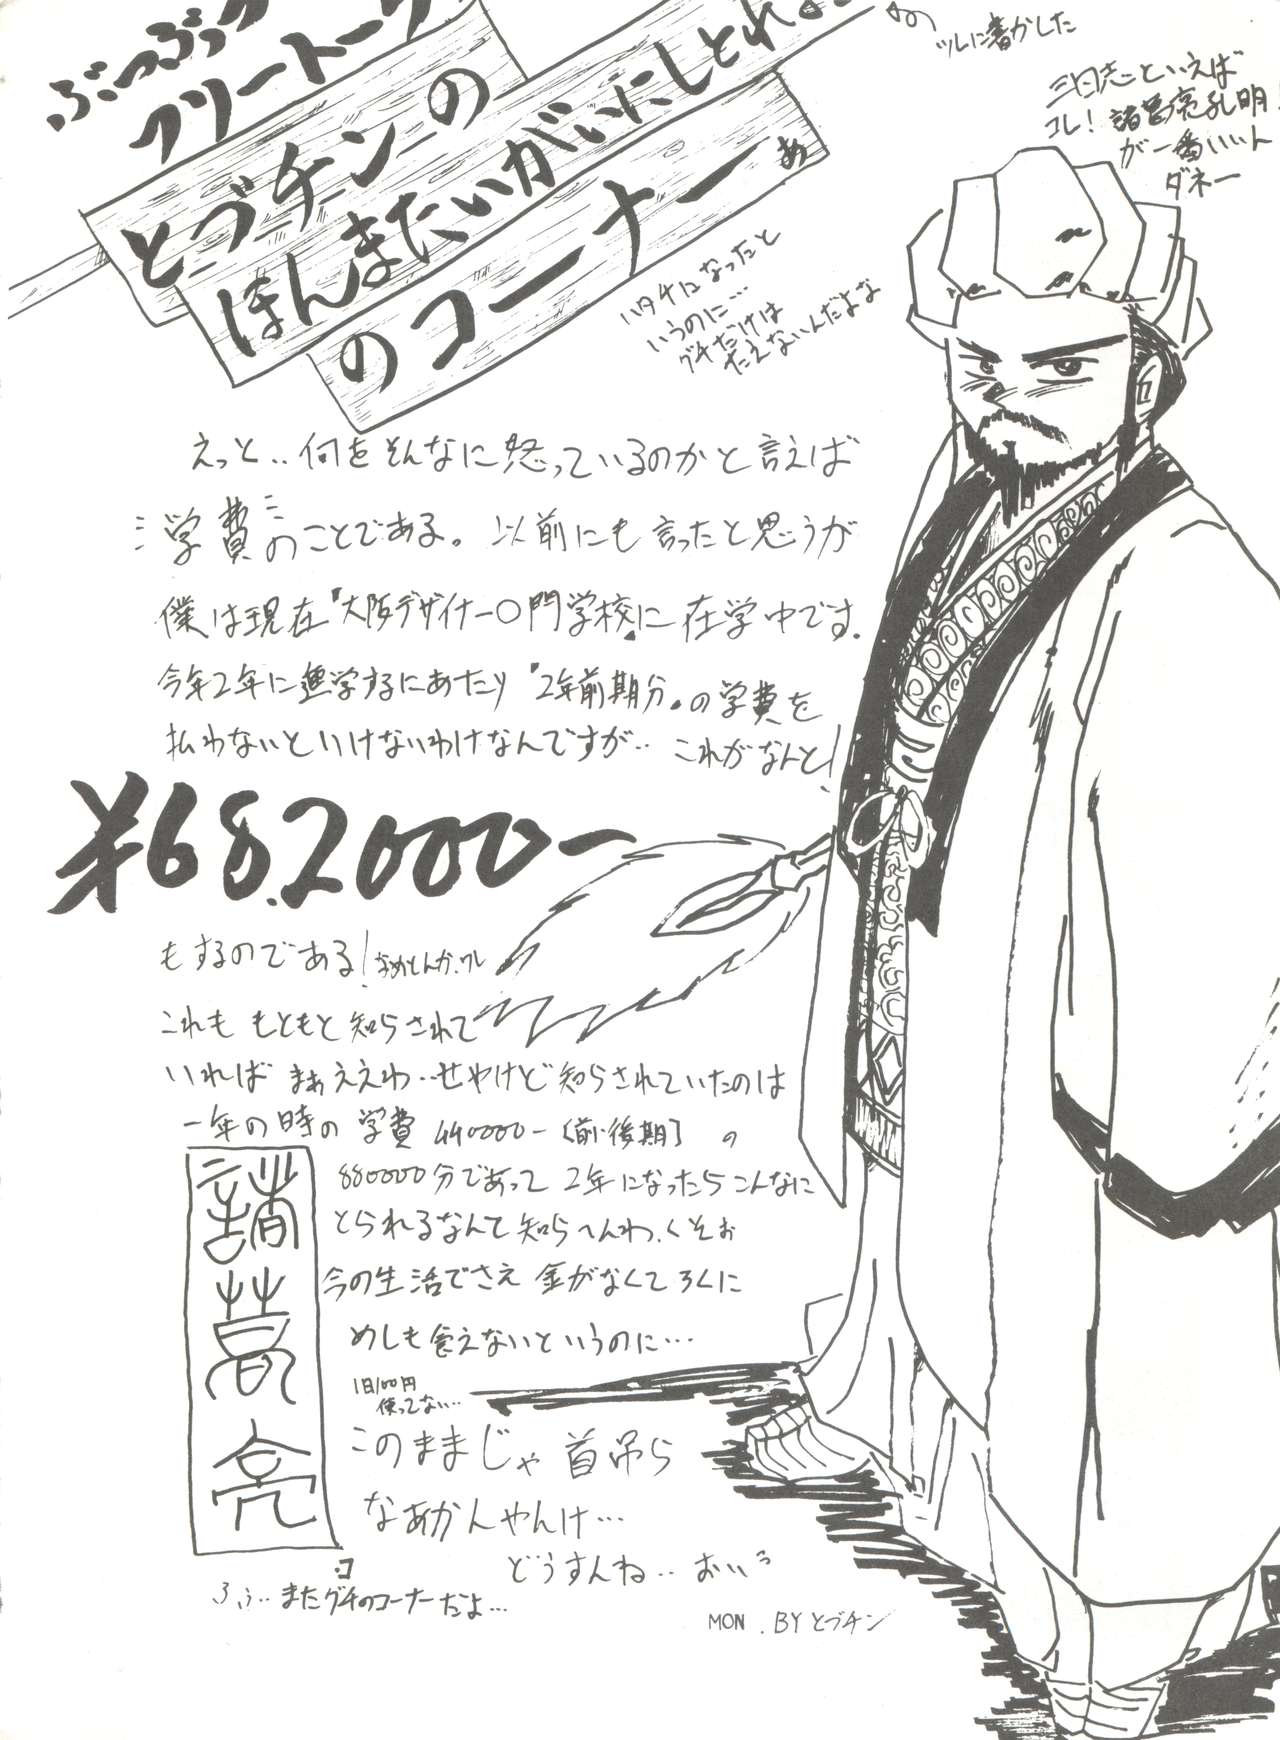 ぶつぶつ
フリートーク
とづチンの
ほんまたいがいにしとれよ
のコーナーぁ
ツレに書かした
三国志といえば
コレ！諸葛亮孔明！
が一番いいん
ダネー
ハタチになったと
いうのに…
グチだけは
たえないんだよな
えっと‥何をそんなに怒っているのかと言えば
学費のことである。以前にも言ったと思うが
僕は現在『大阪デザイナー○門学校』に在学中です.
今年2年に進学するにあたり『2年前期分』の学費を
払わないといけないわけなんですが‥これがなんと！
¥682000ー
もするのである！なめとんか、ワレ
これももともと知らされて
いればまぁええわ‥せやけど知らされていたのは
一年の時の学費440000ー〔前・後期〕の
880000分であって2年になったらこんなに
とられるなんて知らへんわ.くそぉ
今の生活でさえ金がなくてろくに
めしも食えないというのに…
1日100円
使ってない…
このままじゃ首吊ら
なあかんやんけ…
どうすんね‥おいっ
諸葛亮
ふふ‥またグチのコーナーだよ…
MON . BY とづチン